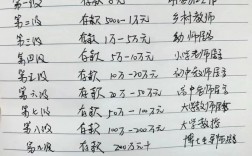 第一级 存款 0元
第二级 存款 5000-1万元 乡村教师
第三级 存款 1万-5万元 幼师居多
第四级 存款 5万-10万元 小学老师居多
第五级 存款 10万-20万元 初中教师居多
第六级 存款 20万-50万元 高中老师居多
第七级 存款 50万-100万元 大学教师居多
第八级 存款 100万-200万元 大学教授
第九级 存款 200万元+ 博士生导师居多